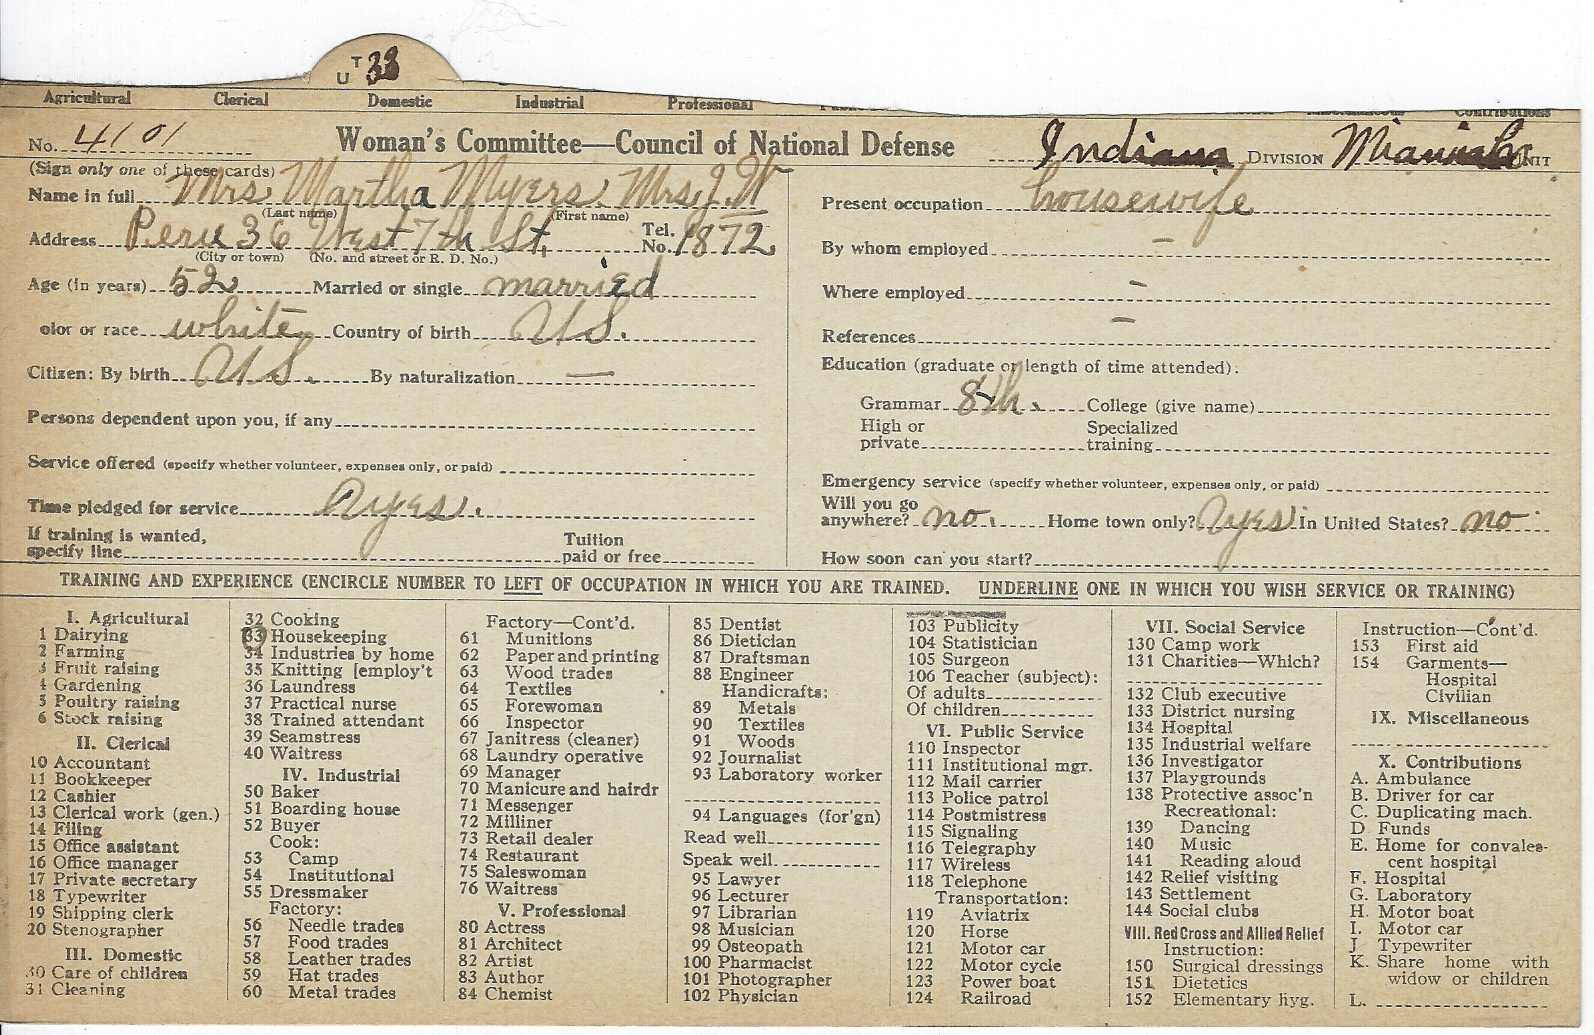 U T 33
Agricultural Clerical Domestic Industrial Professional Contributions
No. 4101 Woman's Committee—Council of National Defense Indiana DIVISION Miami UNIT
(Sign only one of these cards)
Name in full Mrs. Martha Myers. Mrs J. W
(Last name) (First name)
Address Peru 36 West 7th St, Tel. No. 1872
(City or town) (No. and street or R. D. No.)
Age (in years) 52 Married or single married
olor or race white Country of birth U.S.
Citizen: By birth U.S. By naturalization —
Persons dependent upon you, if any
Service offered (specify whether volunteer, expenses only, or paid)
Time pledged for service ayes.
If training is wanted,
specify line Tuition paid or free
Present occupation housewife
By whom employed –
Where employed –
References –
Education (graduate or length of time attended):
Grammar 8th. College (give name)
High or private Specialized training
Emergency service (specify whether volunteer, expenses only, or paid)
Will you go anywhere? no. Home town only? ayes. In United States? no
How soon can you start?
TRAINING AND EXPERIENCE (ENCIRCLE NUMBER TO LEFT OF OCCUPATION IN WHICH YOU ARE TRAINED. UNDERLINE ONE IN WHICH YOU WISH SERVICE OR TRAINING)
I. Agricultural
1 Dairying
2 Farming
3 Fruit raising
4 Gardening
5 Poultry raising
6 Stock raising
II. Clerical
10 Accountant
11 Bookkeeper
12 Cashier
13 Clerical work (gen.)
14 Filing
15 Office assistant
16 Office manager
17 Private secretary
18 Typewriter
19 Shipping clerk
20 Stenographer
III. Domestic
30 Care of children
31 Cleaning
32 Cooking
33 Housekeeping
34 Industries by home
35 Knitting [employ't
36 Laundress
37 Practical nurse
38 Trained attendant
39 Seamstress
40 Waitress
IV. Industrial
50 Baker
51 Boarding house
52 Buyer
Cook:
53 Camp
54 Institutional
55 Dressmaker
Factory:
56 Needle trades
57 Food trades
58 Leather trades
59 Hat trades
60 Metal trades
Factory—Cont'd.
61 Munitions
62 Paper and printing
63 Wood trades
64 Textiles
65 Forewoman
66 Inspector
67 Janitress (cleaner)
68 Laundry operative
69 Manager
70 Manicure and hairdr
71 Messenger
72 Milliner
73 Retail dealer
74 Restaurant
75 Saleswoman
76 Waitress
V. Professional
80 Actress
81 Architect
82 Artist
83 Author
84 Chemist
85 Dentist
86 Dietician
87 Draftsman
88 Engineer
Handicrafts:
89 Metals
90 Textiles
91 Woods
92 Journalist
93 Laboratory worker
94 Languages (for'gn)
Read well
Speak well
95 Lawyer
96 Lecturer
97 Librarian
98 Musician
99 Osteopath
100 Pharmacist
101 Photographer
102 Physician
103 Publicity
104 Statistician
105 Surgeon
106 Teacher (subject):
Of adults
Of children
VI. Public Service
110 Inspector
111 Institutional mgr.
112 Mail carrier
113 Police patrol
114 Postmistress
115 Signaling
116 Telegraphy
117 Wireless
118 Telephone
Transportation:
119 Aviatrix
120 Horse
121 Motor car
122 Motor cycle
123 Power boat
124 Railroad
VII. Social Service
130 Camp work
131 Charities—Which?
132 Club executive
133 District nursing
134 Hospital
135 Industrial welfare
136 Investigator
137 Playgrounds
138 Protective assoc'n
Recreational:
139 Dancing
140 Music
141 Reading aloud
142 Relief visiting
143 Settlement
144 Social clubs
VIII. Red Cross and Allied Relief
Instruction:
150 Surgical dressings
151 Dietetics
152 Elementary hyg.
Instruction—Cont'd.
153 First aid
154 Garments—
Hospital
Civilian
IX. Miscellaneous
X. Contributions
A. Ambulance
B. Driver for car
C. Duplicating mach.
D Funds
E. Home for convales-
cent hospital
F. Hospital
G. Laboratory
H. Motor boat
I. Motor car
J Typewriter
K. Share home with
widow or children
L.